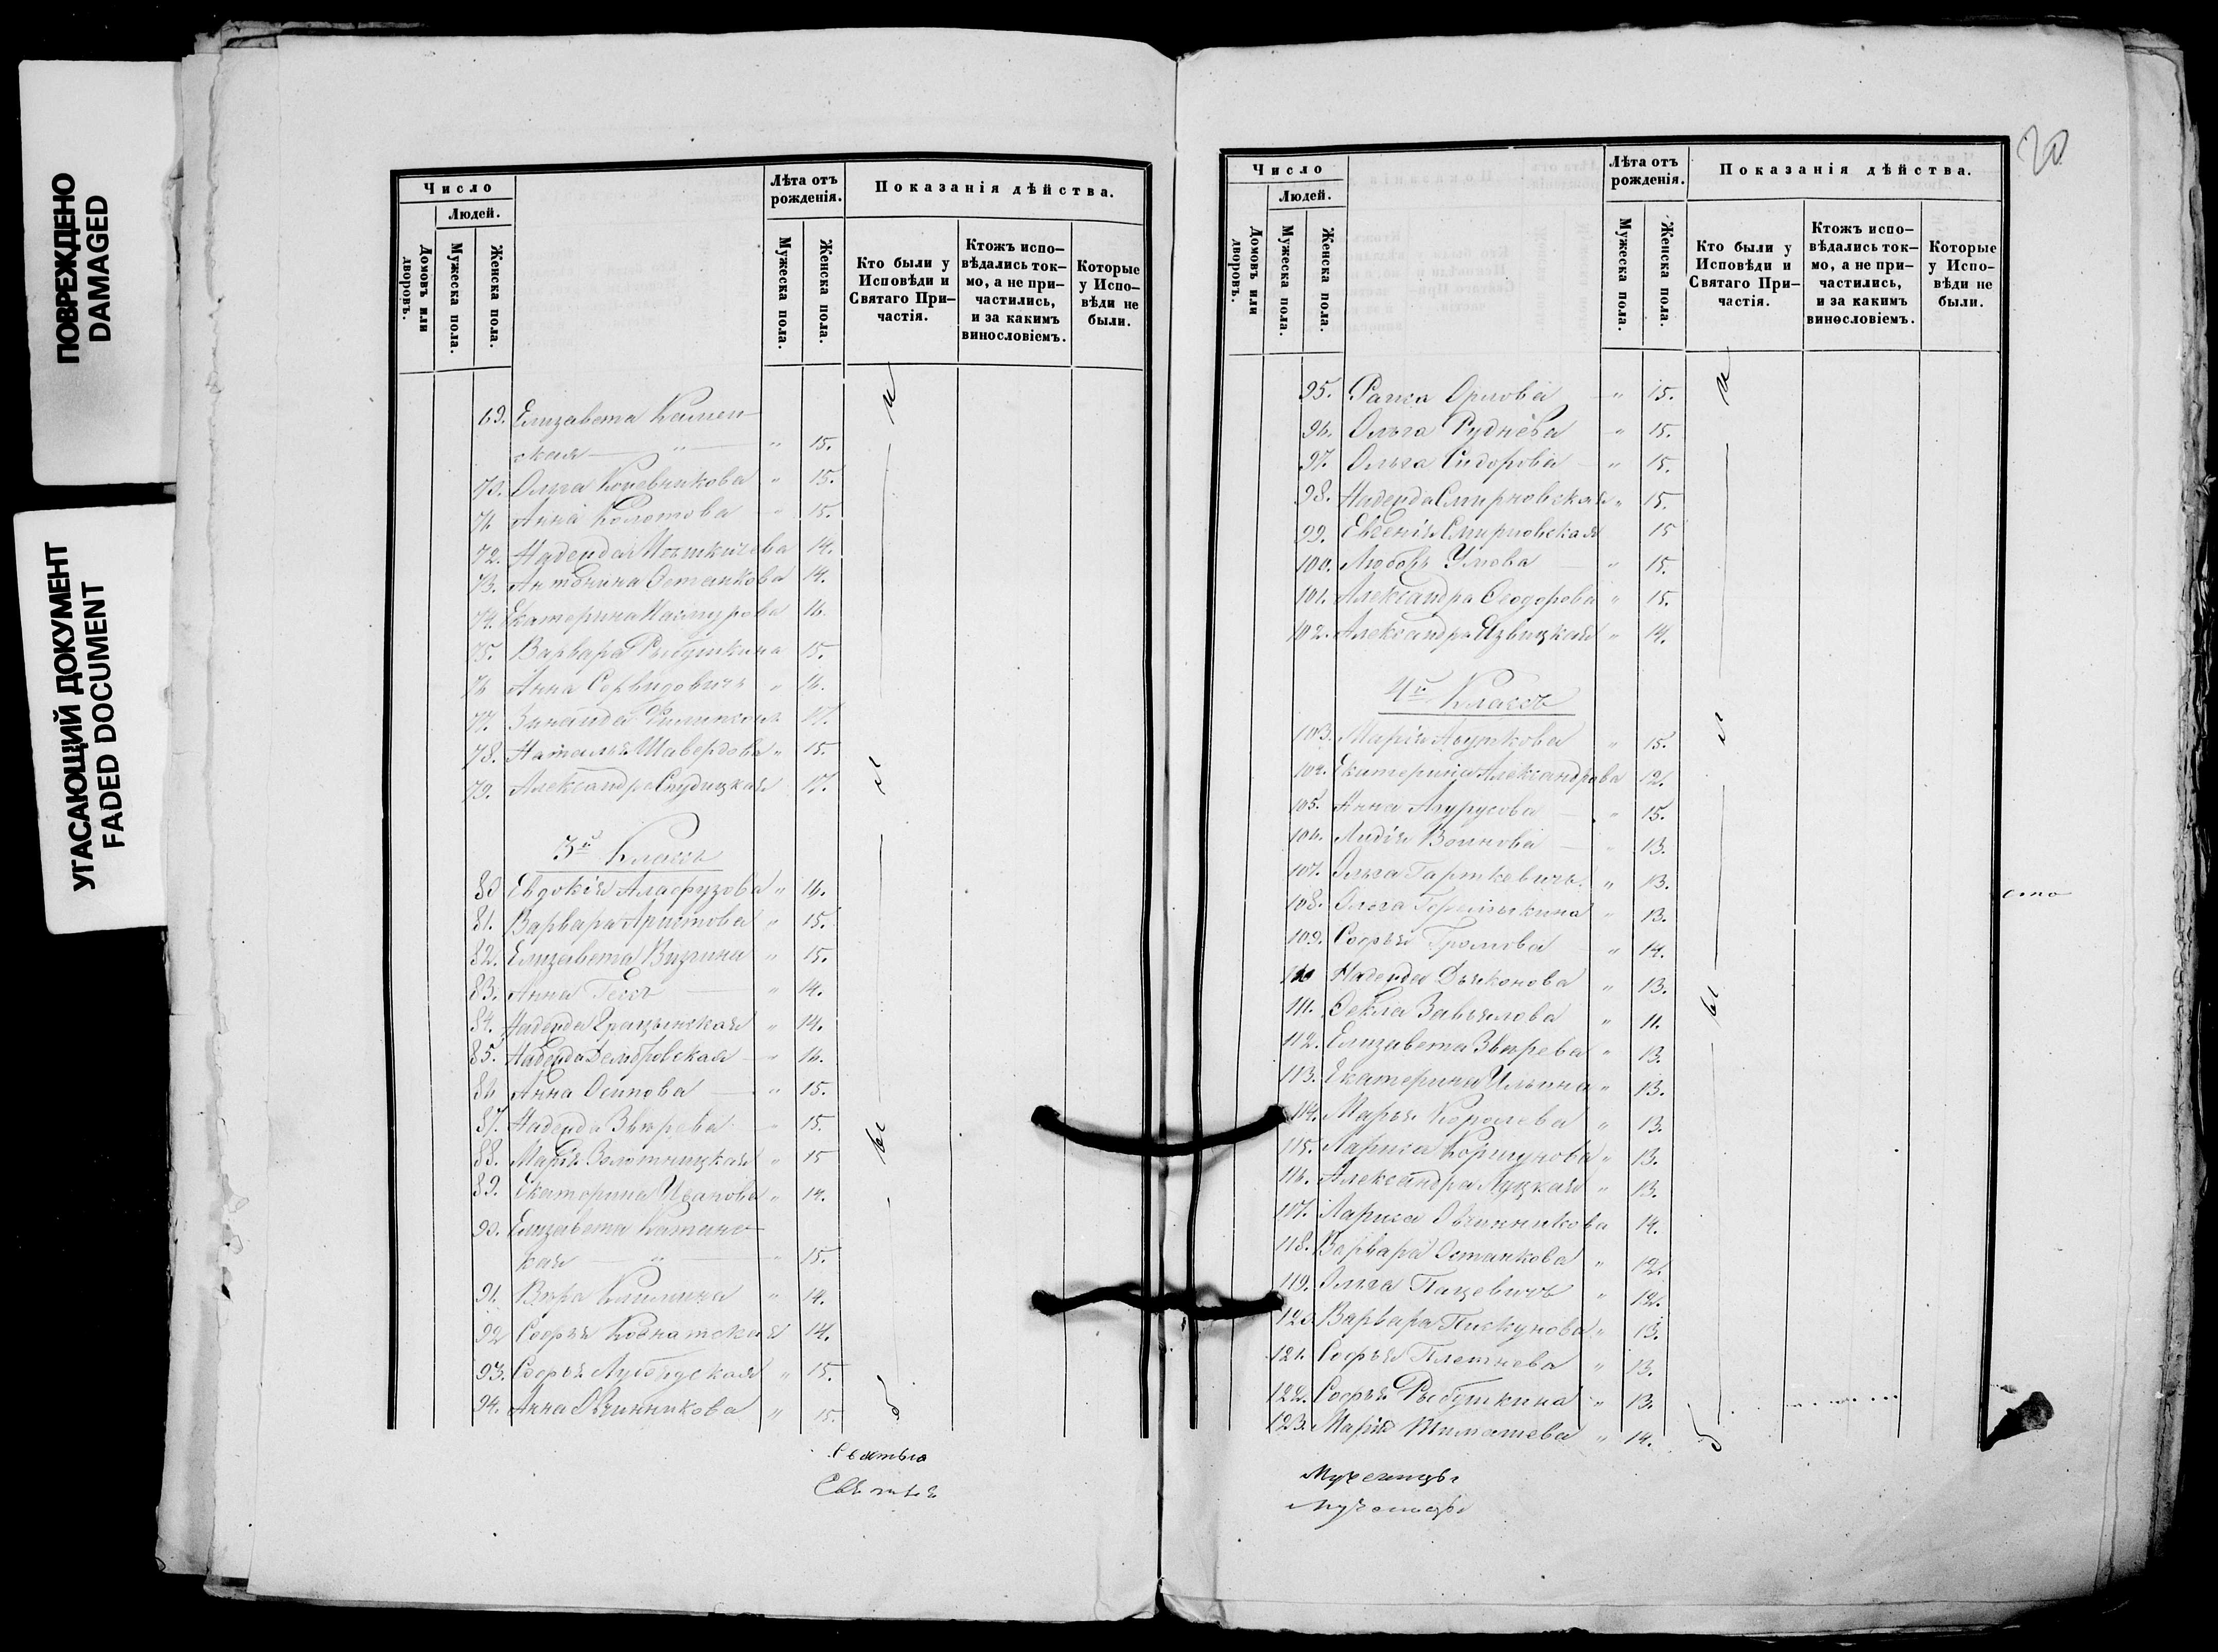 ПОВРЕЖДЕНО
DAMAGED
УГАСАЮЩИЙ ДОКУМЕНТ
FADED DOCUMENT
Число
Людей.
Домовъ или дворовъ.
Мужеска пола.
Женска пола.
Лѣта отъ рожденія.
Мужеска пола.
Женска пола.
Показанія дѣйства.
Кто были у Исповѣди и Святаго Причастія.
Ктожъ исповѣдались токмо, а не причастились, и за какимъ винословіемъ.
Которые у Исповѣди не были.
69. Елизавета Камен
ская — " — " 15.
70. Ольга " 15.
71. Анна Колотова " 15.
72. Надежда 14.
73. Антонина Останкова 14.
74. Екатерина 16.
75. Варвара 15.
76 Анна " 16.
77. Зинаида 17.
78. Наталья Шавердова " 15.
79. Александра 17.
3й Классъ
80 Евдокія Алафузова " 16.
81. Варвара Аристова " 15.
82. Елизавета " 15.
83. Анна Гессъ — " 14.
84. Надежда " 14.
85. Надежда " 16.
86 Анна Осипова — " 15.
87. Надежда Звѣрева " 15.
88. Марія Золотницкая " 15
89. Екатерина Иванова " 14.
90. Елизавета Катанс
кая — " — " 15.
91. Вѣра " 14.
92 Софья 14.
93. Софья " 15.
94. Анна Овчинникова " 15.
и
л
ы
б
Святыя
Святыя
20
Число
Людей.
Домовъ или дворовъ.
Мужеска пола.
Женска пола.
Лѣта отъ рожденія.
Мужеска пола.
Женска пола.
Показанія дѣйства.
Кто были у Исповѣди и Святаго Причастія.
Ктожъ исповѣдались токмо, а не причастились, и за какимъ винословіемъ.
Которые у Исповѣди не были.
95. Раиса Орлова — " 15.
96. Ольга Руднева — " 15.
97. Ольга Сидорова — " 15.
98. Надежда Смирновская " 15.
99. Евгенія Смирновская 15
100. Любовь Умова — " 15.
101. Александра Ѳеодорова " 15.
102. Александра " 14.
4й Классъ
103. Марія " 15.
104. Екатерина Александрова 12.
105. Анна — " 15.
106. Лидія Воинова — " 13.
107. Ольга Гарткевичъ " 13.
108. Ольга Горемыкина " 13.
109. Софья Громова " 14.
110 Надежда Дьяконова " 13.
111. Ѳекла Завьялова " 11.
112. Елизавета Звѣрева " 13.
113. Екатерина Ильина " 13.
114. Марья Королева " 13.
115. Лариса Коршунова " 13.
116. Александра Луцкая " 13.
117. Лариса Овчинникова 14.
118. Варвара Останкова " 12.
119. Ольга Пацевичъ " 12.
120. Варвара Пискунова " 13.
121. Софья Плетнева " 13.
122. Софья Рыбушкина " 13.
123. Марія Тимашева " 14.
и
л
ы
б
сто
Мученицы
Мученицы